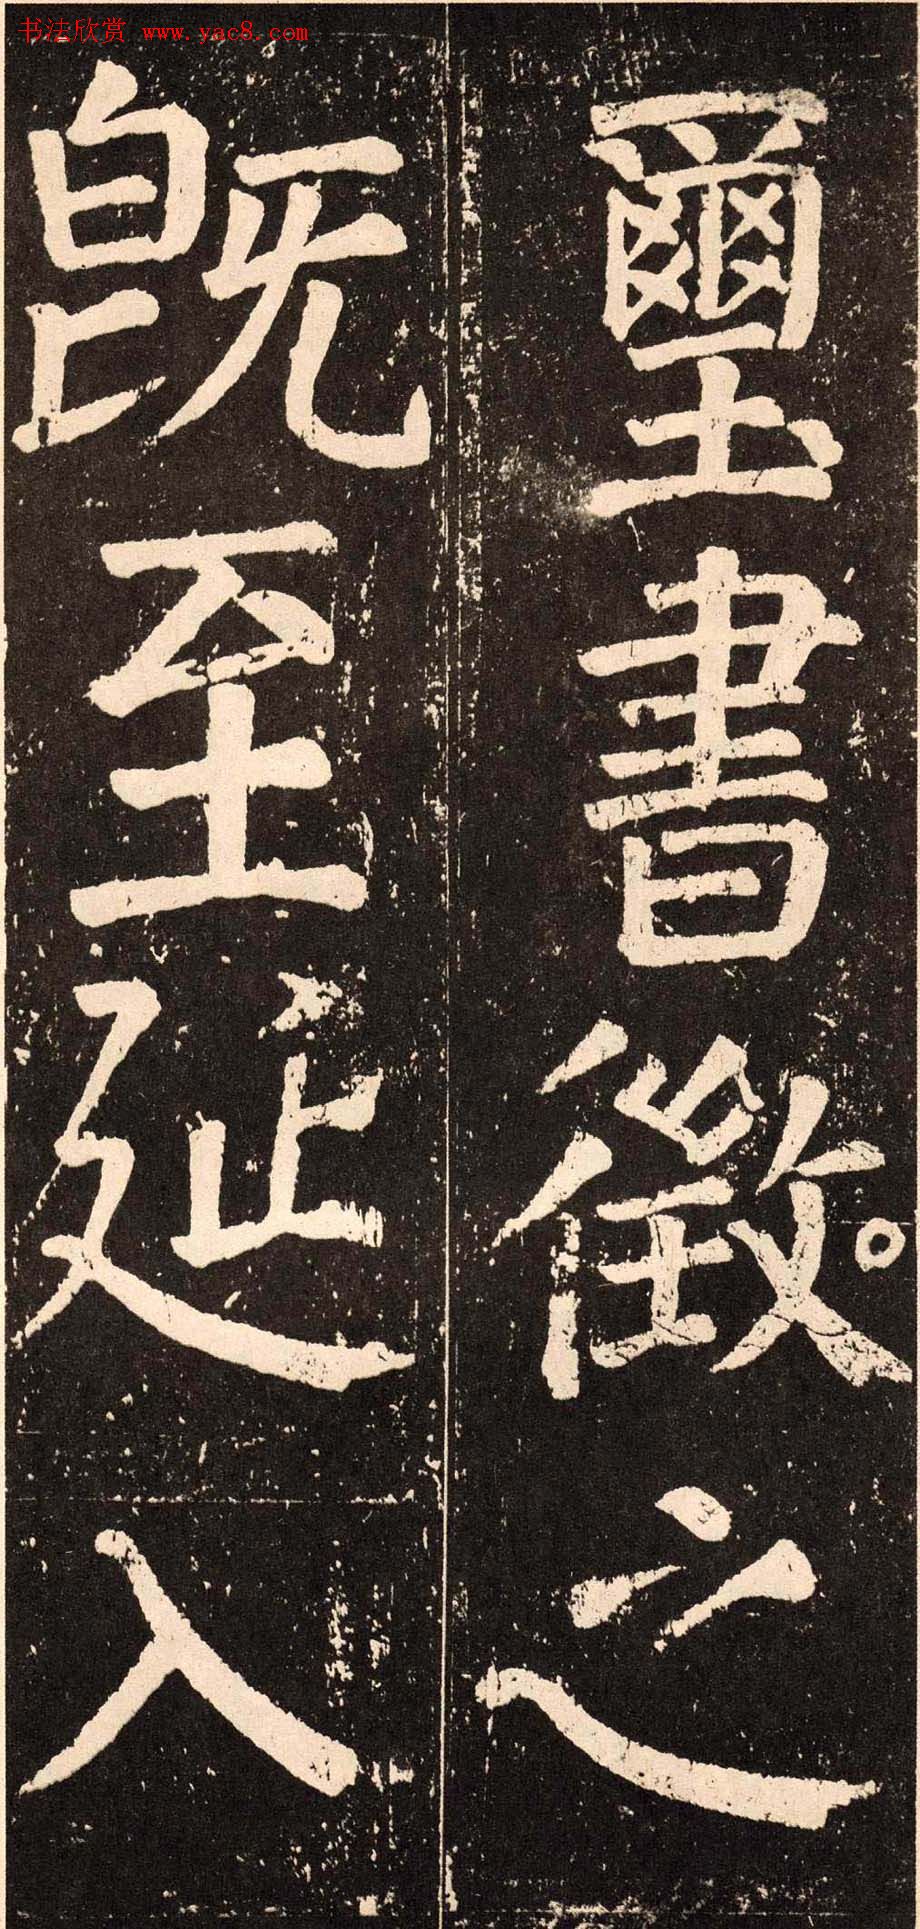 书法欣赏 www.yac8.com
璽書徵之。
既至延入